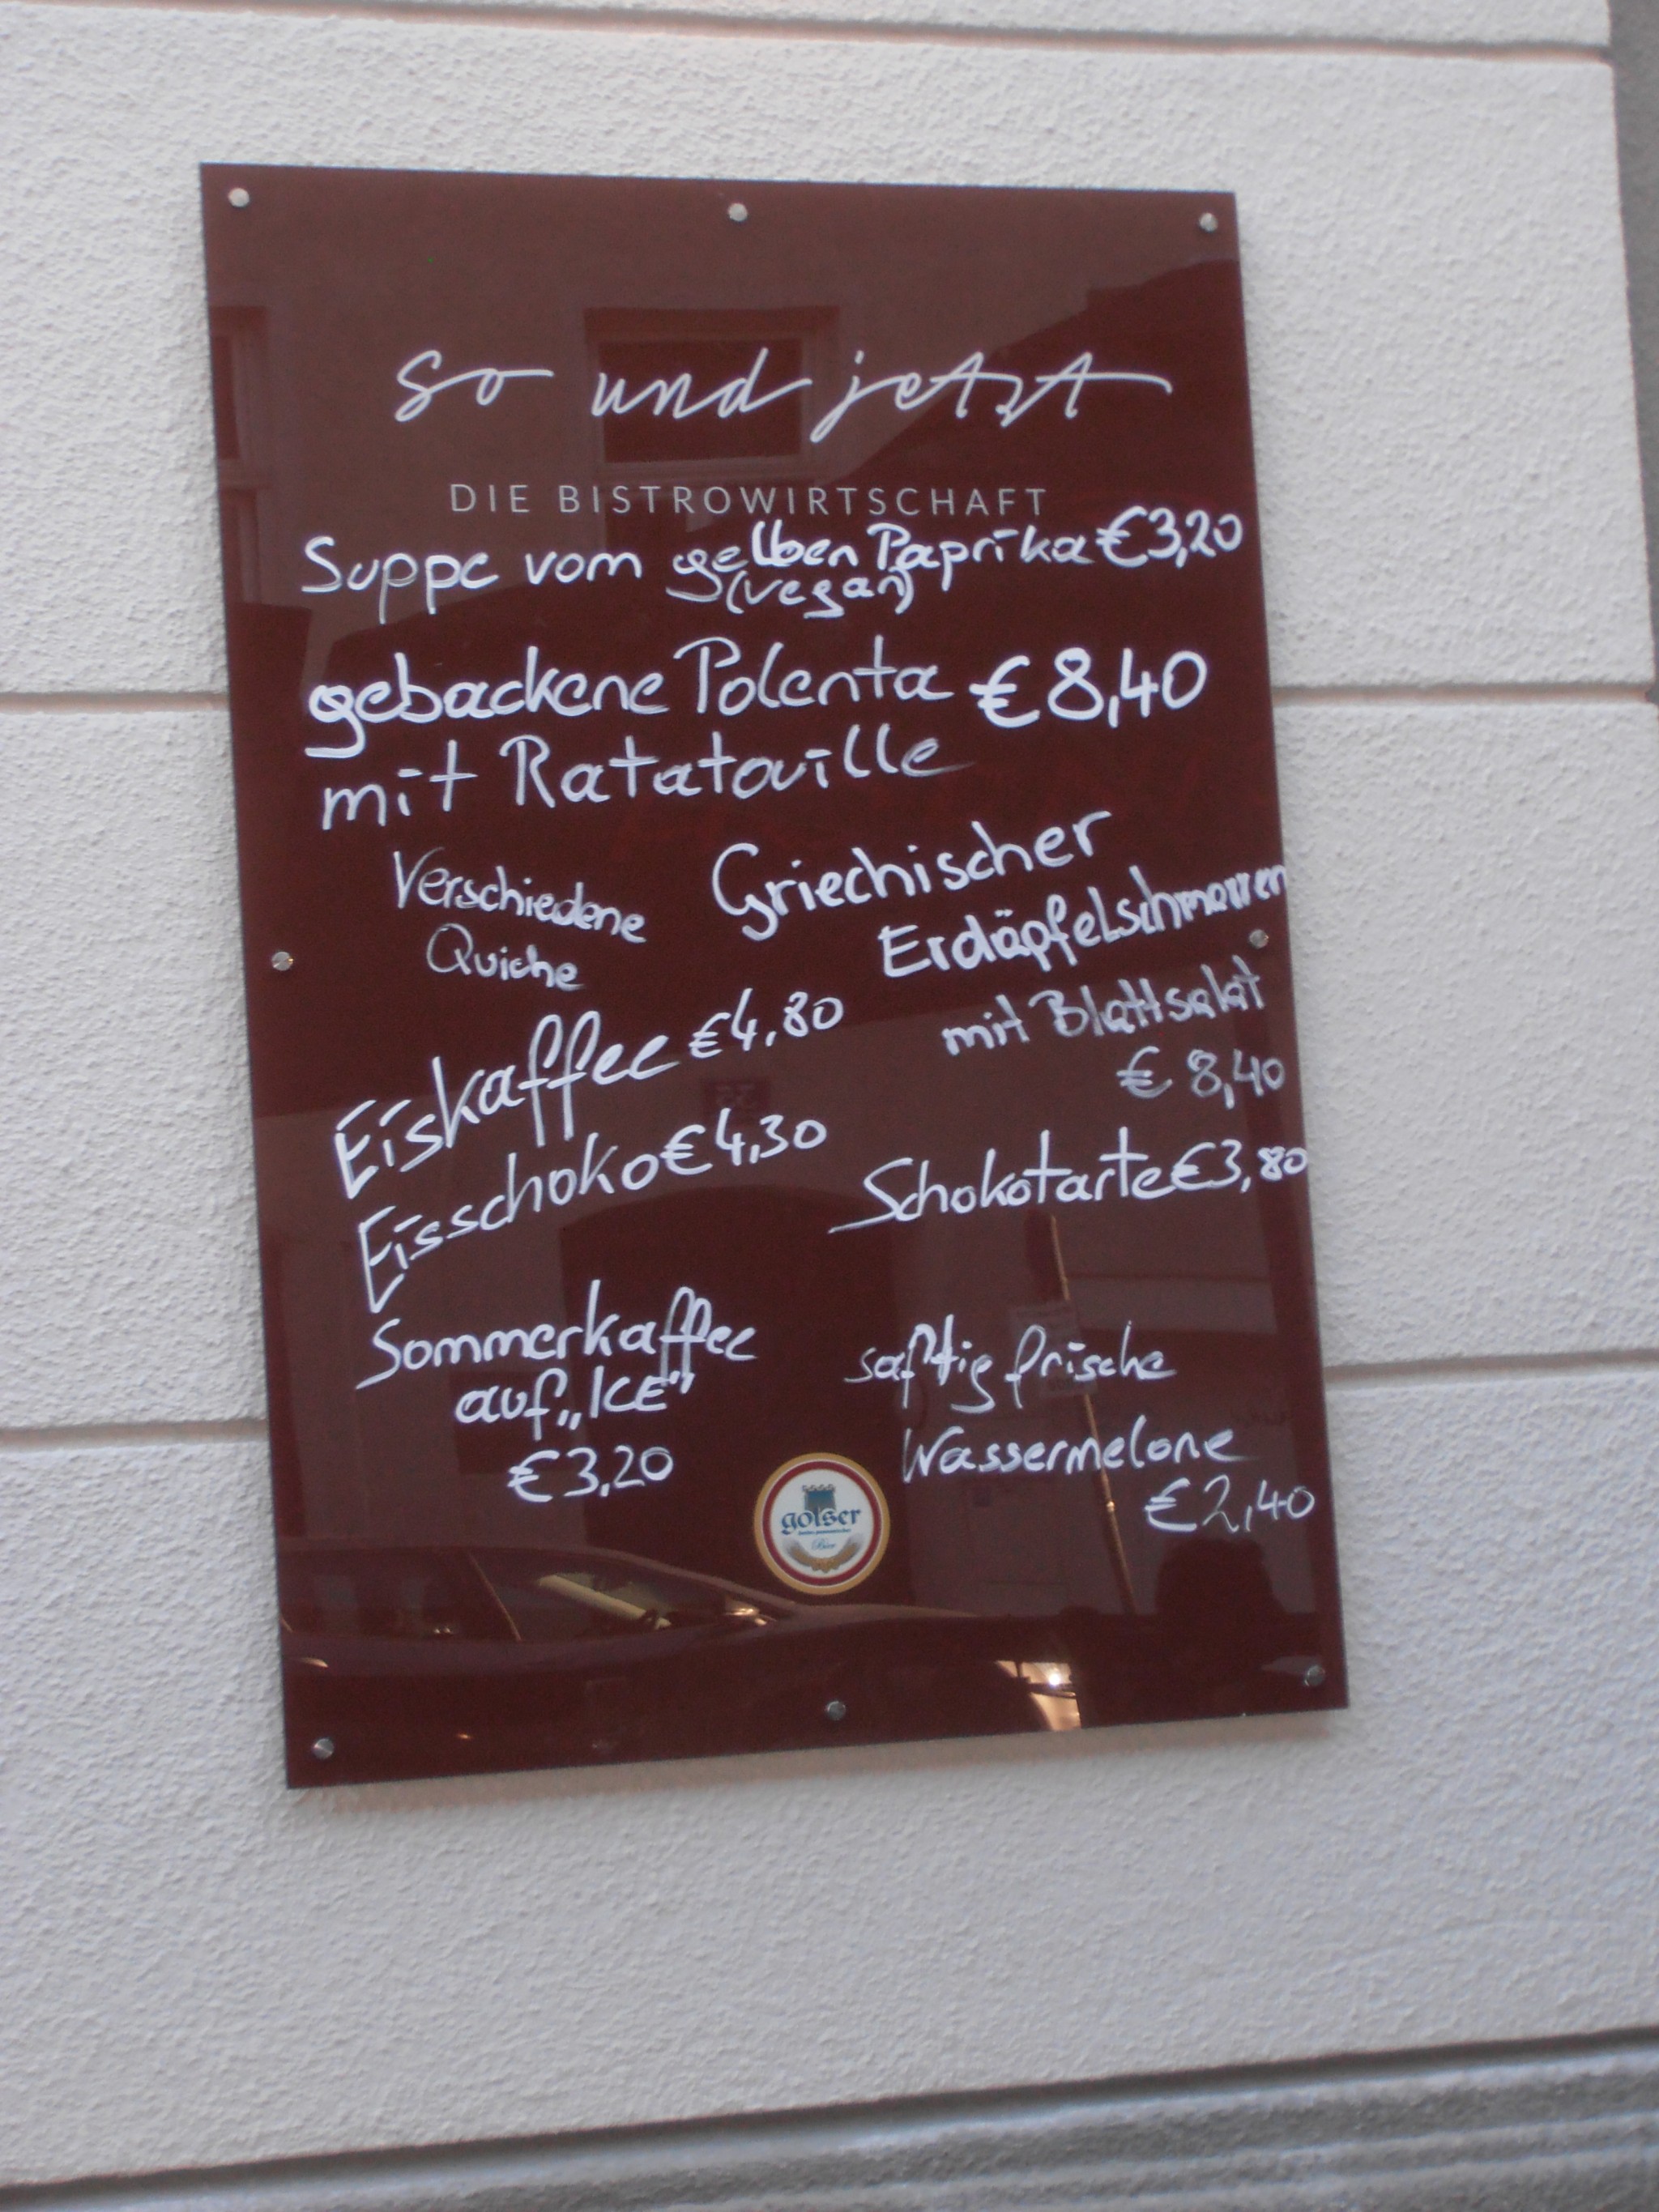 so und jetzt
DIE BISTROWIRTSCHAFT
Suppe vom gelben Paprika €3,20
(vegan)
gebackene Polenta €8,40
mit Ratatouille
Verschiedene
Quiche
Griechischer
Erdäpfelschmarren
mit Blattsalat
€ 8,40
Eiskaffee €4,80
Eisschoko €4,30
Schokotarte €3,80
Sommerkaffee
auf „ICE"
€3,20
saftig frische
Wassermelone
€2,40
golser
Bier